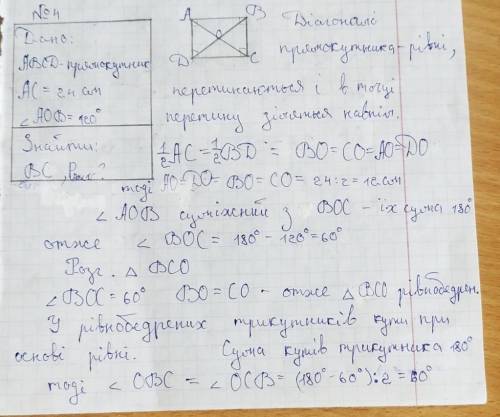 №4
Дано:
ABCD-прямокутник
AC = 24 см
∠AOB = 120°
Знайти:
BC, ?
A B
O
D C
Діагоналі
прямокутника-рівні,
перетинаються і в точці
перетину діляться навпіл.
½AC = ½BD = BO = CO = AO = DO
тоді AO = DO = BO = CO = 24:2 = 12 см
∠AOB суміжний з BOC - їх сума 180°
отже ∠BOC = 180° - 120° = 60°
Розг. △ BCO
∠BOC = 60° BO = CO - отже △BCO рівнобедрен.
У рівнобедрених трикутників кути при
основі рівні. Сума кутів трикутника 180°
тоді ∠OBC = ∠OCB = (180° - 60°):2 = 60°